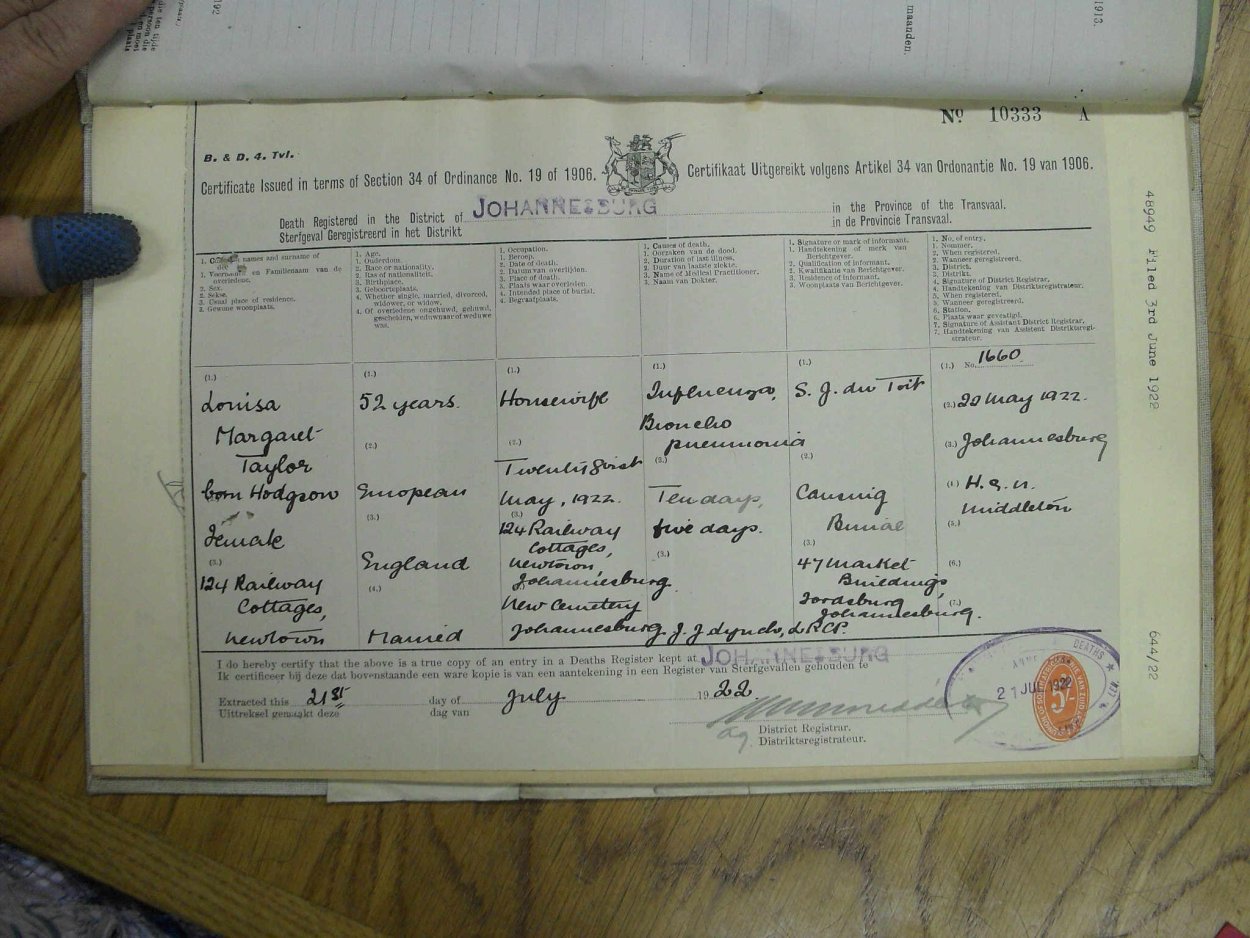 192
maanden.
1913.
No 10333 A
B. & D. 4. Tvl.
Certificate Issued in terms of Section 34 of Ordinance No. 19 of 1906.
Certifikaat Uitgereikt volgens Artikel 34 van Ordonantie No. 19 van 1906.
Death Registered in the District of JOHANNESBURG in the Province of the Transvaal.
Sterfgeval Geregistreerd in het Distrikt in de Provincie Transvaal.
names and surname of
1. Voornamen en Familienaam van de
overledene.
2. Sex.
2. Sekse.
3. Usual place of residence.
3. Gewone woonplaats.
1. Age.
1. Ouderdom.
2. Race or nationality.
2. Ras of nationaliteit.
3. Birthplace.
3. Geboorteplaats.
4. Whether single, married, divorced,
widower, or widow.
4. Of overledene ongehuwd, gehuwd,
gescheiden, weduwnaar of weduwe
was.
1. Occupation.
1. Beroep.
2. Date of death.
2. Datum van overlijden.
3. Place of death.
3. Plaats waar overleden.
4. Intended place of burial.
4. Begraafplaats.
1. Causes of death.
1. Oorzaken van de dood.
2. Duration of last illness.
2. Duur van laatste ziekte.
3. Name of Medical Practitioner.
3. Naam van Dokter.
1. Signature or mark of informant.
1. Handtekening of merk van
Berichtgever.
2. Qualification of informant.
2. Kwalifikatie van Berichtgever.
3. Residence of informant.
3. Woonplaats van Berichtgever.
1. No. of entry.
1. Nommer.
2. When registered.
2. Wanneer geregistreerd.
3. District.
3. Distrikt.
4. Signature of District Registrar.
4. Handtekening van Distriktsregistrateur.
5. When registered.
5. Wanneer geregistreerd.
6. Station.
6. Plaats waar gevestigd.
7. Signature of Assistant District Registrar.
7. Handtekening van Assistent Distriktsregi-
strateur.
(1.)
Louisa
Margaret
Taylor
born Hodgson
Female
(3.)
124 Railway
Cottages,
Newtown
(1.)
52 years.
(2.)
European
(3.)
England
(4.)
Married
(1.)
Housewife
(2.)
Twenty first
May, 1922.
(3.)
124 Railway
Cottages,
Newtown,
Johannesburg.
New Cemetery
Johannesburg
(1.)
Influenza,
Broncho
pneumonia
(2.)
Ten days,
five days.
(3.)
J. J. Lynch, L.R.C.P.
(1.)
S. J. du Toit
(2.)
Causing
Burial
(3.)
47 Market
Buildings
Fordsburg
Johannesburg.
(1.) No. 1660.
(2.) 22 May 1922.
(3.) Johannesburg
(4.)
Middleton
(5.)
(6.)
(7.)
I do hereby certify that the above is a true copy of an entry in a Deaths Register kept at JOHANNESBURG
Ik certificeer bij deze dat bovenstaande een ware kopie is van een aantekening in een Register van Sterfgevallen gehouden te
Extracted this 21st day of July 1922
Uittreksel gemaakt deze dag van
District Registrar.
Distriktsregistrateur.
ag.
DEATHS
21 JUL 1922
48949 Filed 3rd June 1922
644/22